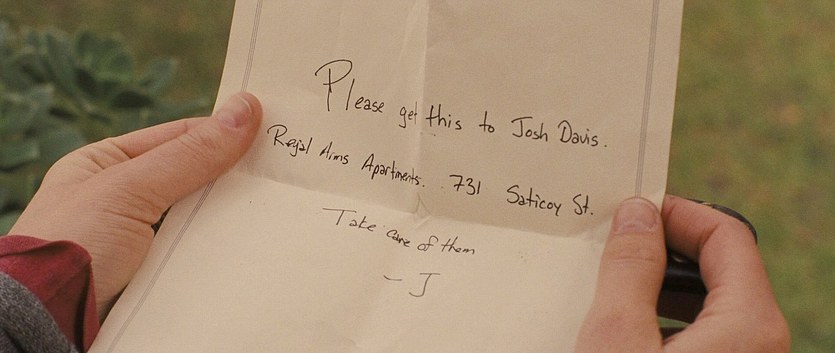 Please get this to Josh Davis.
Regal Arms Apartments. 731 Saticoy St.
Take care of them
- J